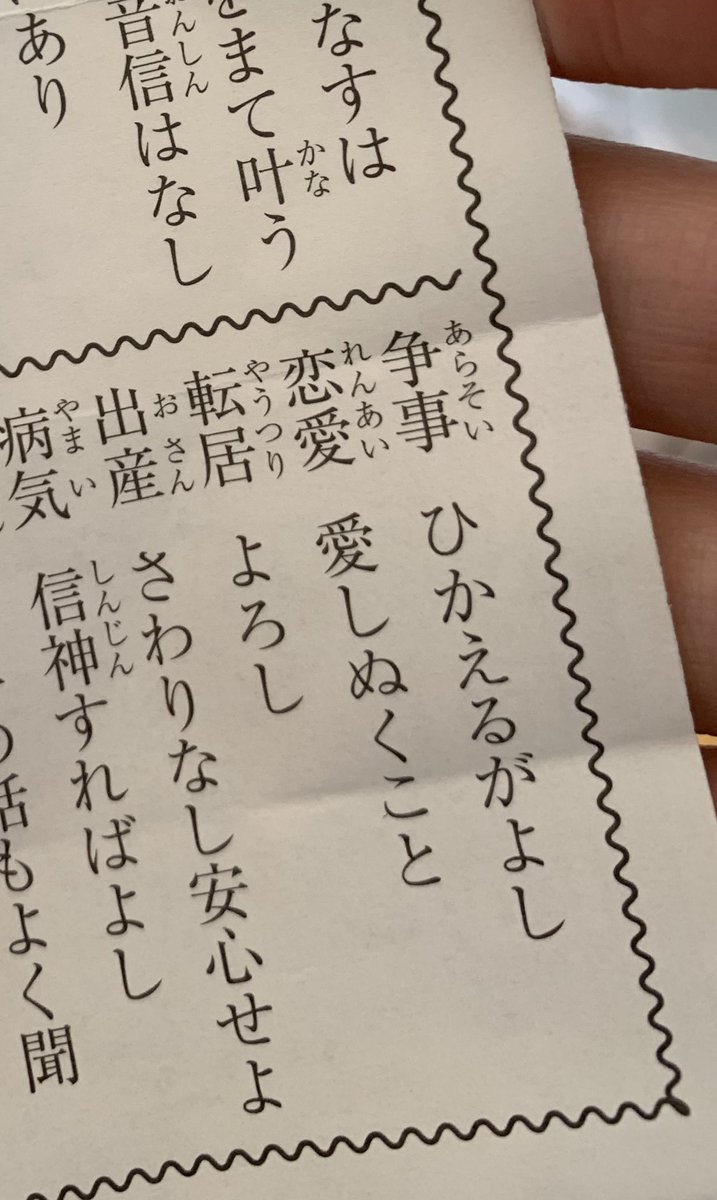 なすは
まて叶う
音信はなし
あり
争事 ひかえるがよし
恋愛 愛しぬくこと
転居 よろし
出産 さわりなし安心せよ
病気 信神すればよし
の話もよく聞